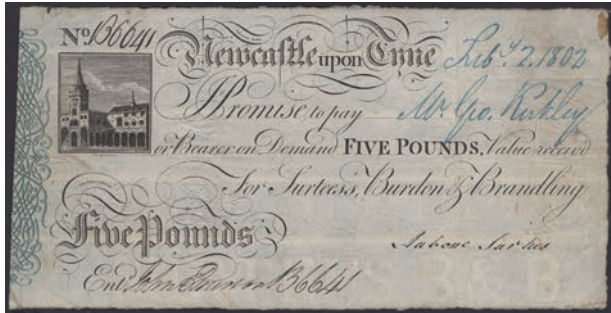 No. B6641 Newcastle upon Tyne Feby. 2. 1802
I Promise to pay Mr. Geo. Kirkley
or Bearer on Demand FIVE POUNDS. Value received
For Surtees's, Burdon & Brandling
Five Pounds
Aubone Surtees
Entd. John B6641